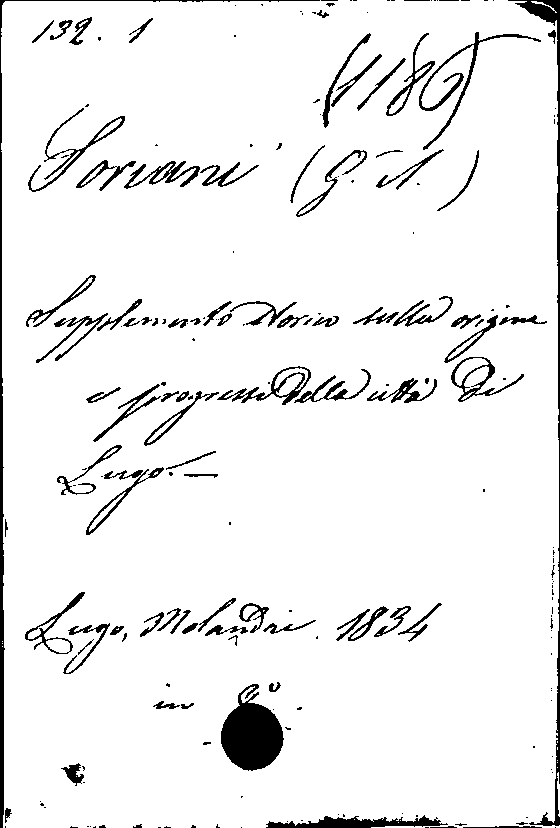 132. 1
(1186)
Soriani (G. A.)
Supplemento storico sulla origine
e progressi della città di
Lugo. —
Lugo, Melandri 1834
in 8º